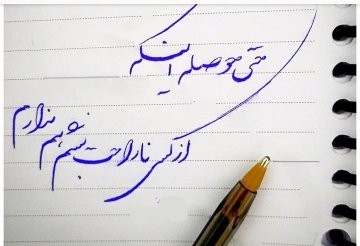 حتی حوصله اینکه
از کسی ناراحت بشم هم ندارم